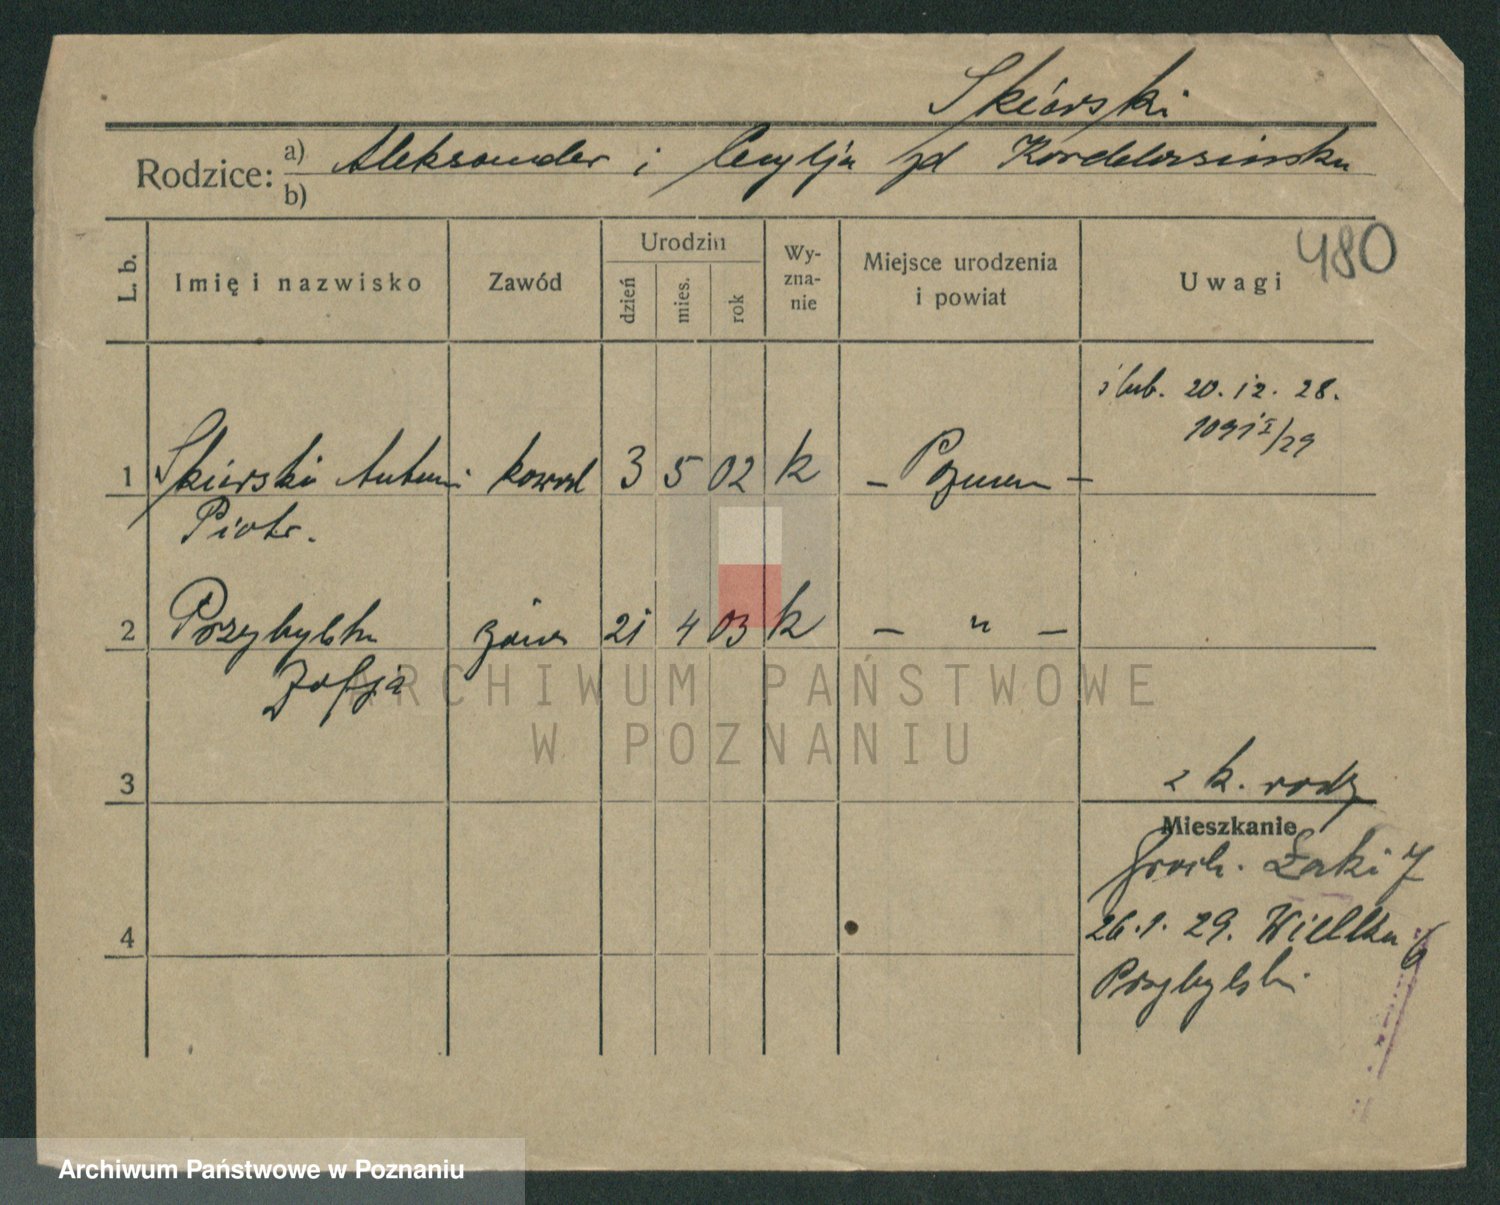 Skórski
Rodzice: a) Aleksander i Cecylja zd
b)
480
L. b. Imię i nazwisko Zawód Urodzin dzień mies. rok Wyznanie Miejsce urodzenia i powiat Uwagi
ślub. 20. 12. 28.
1091 I/29
1 Skórski Antoni kowal 3 5 02 k – Poznań –
Piotr.
2 Przybylska żona 21 4 03 k – " –
Zofja
ARCHIWUM PAŃSTWOWE
W POZNANIU
3 z k. rodz
Mieszkanie
Groch. Łąki 7
4 26.1.29. Wielka 6
Przybylski
Archiwum Państwowe w Poznaniu